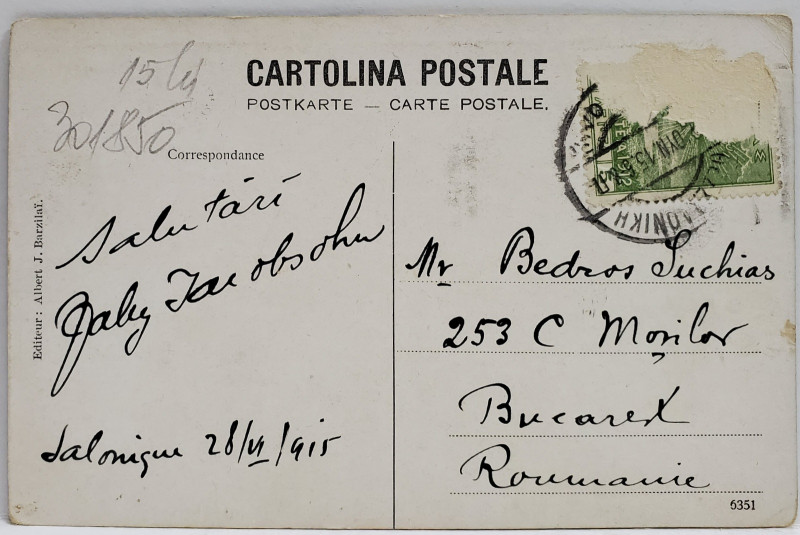 15 lei
301850
CARTOLINA POSTALE
POSTKARTE — CARTE POSTALE.
Correspondance
Editeur: Albert J. Barzilaï.
Salutări
Gaby Jacobsohn
Salonique 28/VI/915
Mr Bedros Suchias
253 C Moșilor
Bucarest
Roumanie
6351
ΝΙΚΗ